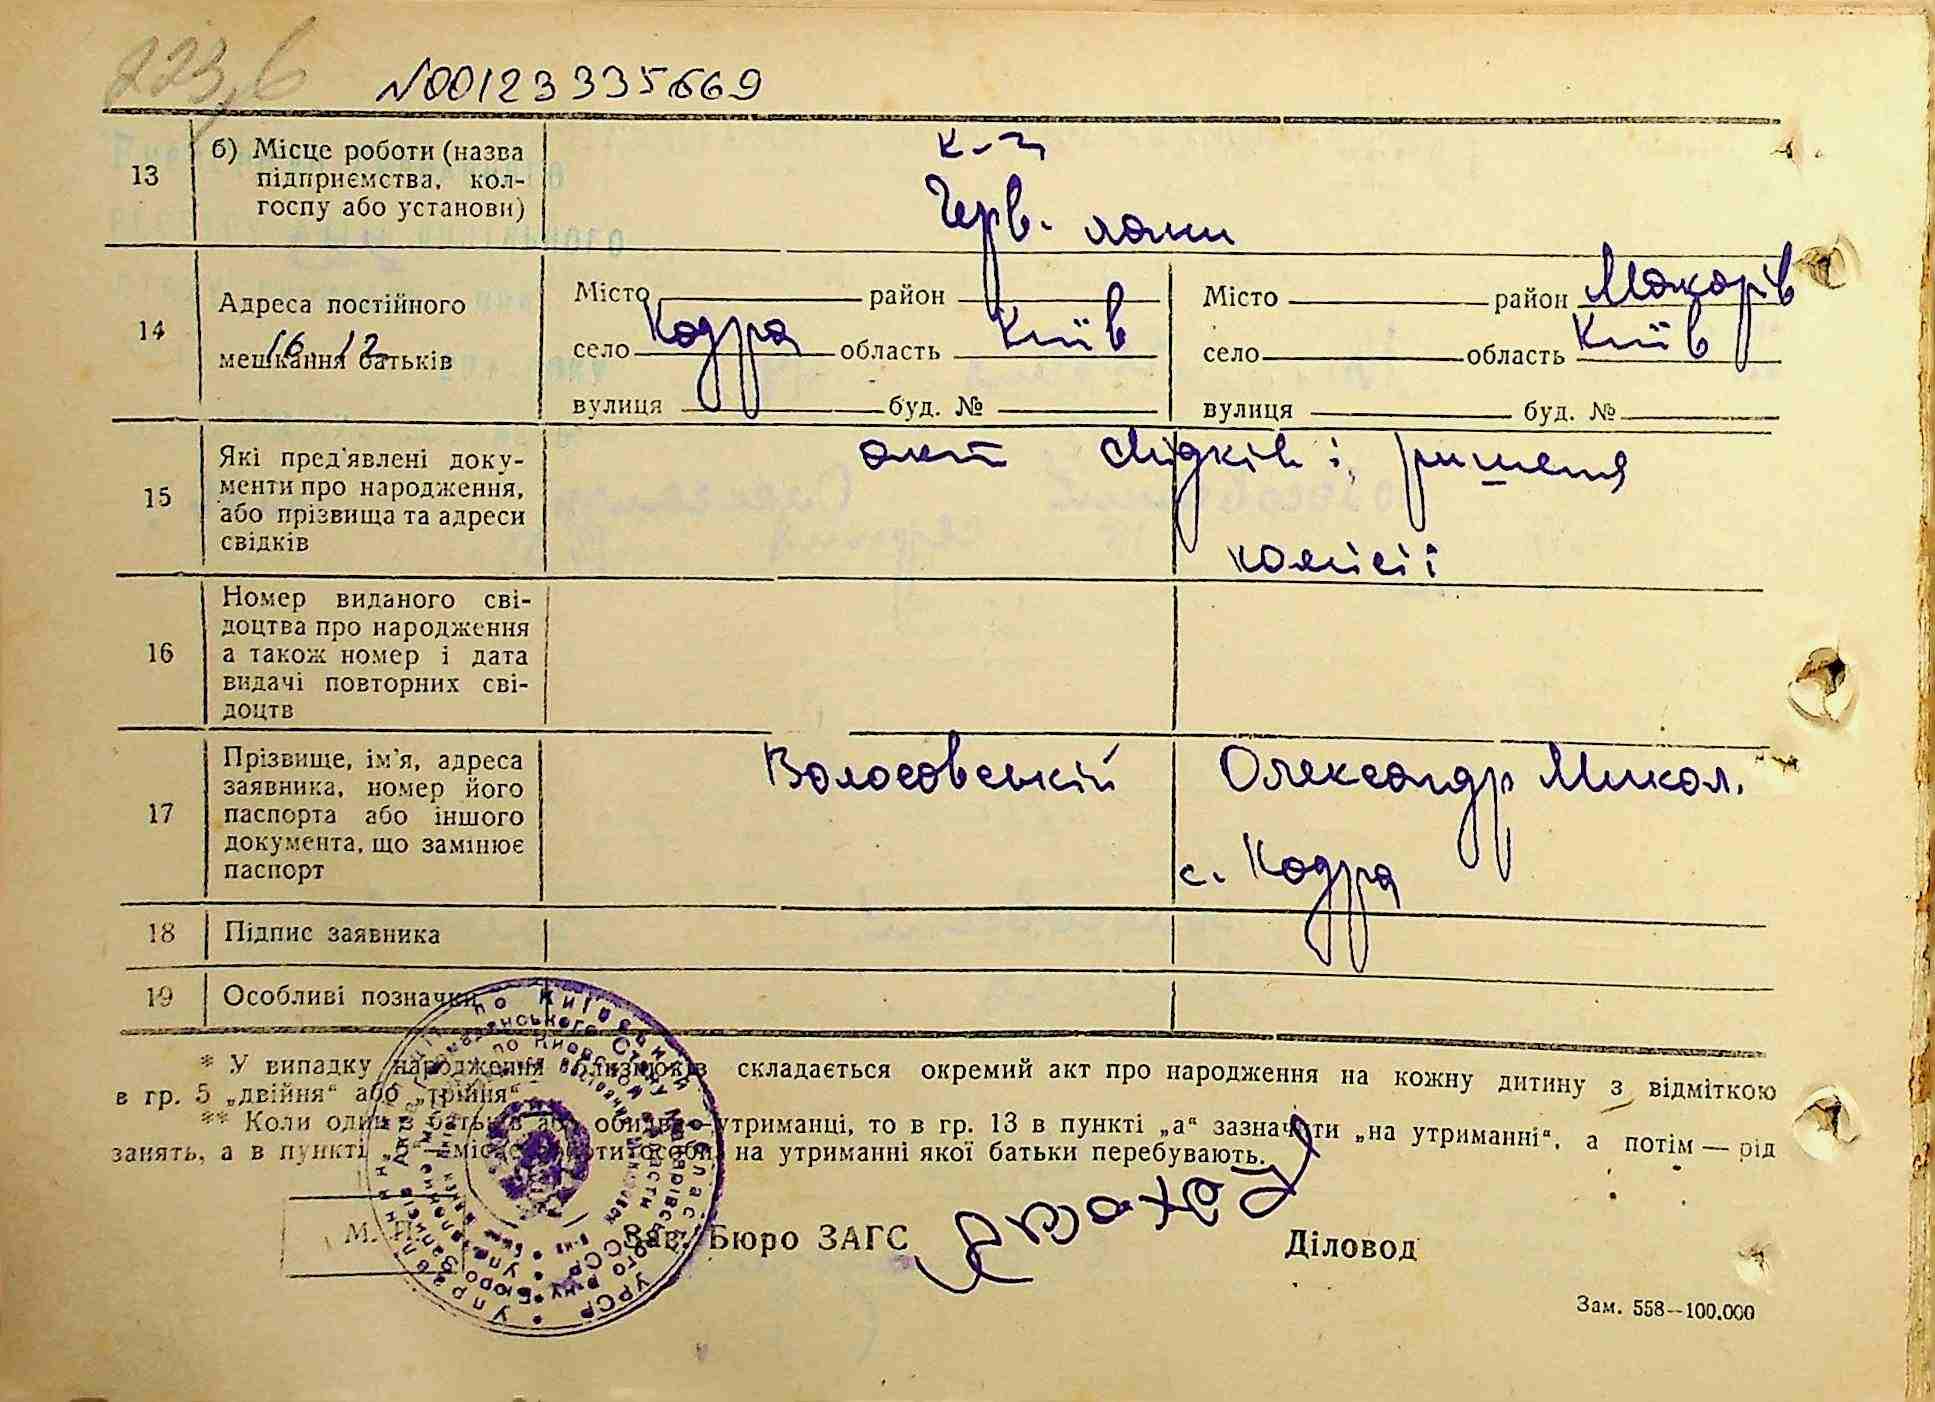 223,6
N00123335669
13
б) Місце роботи (назва
підприємства, кол-
госпу або установи)
к-п
Черв. лани
14
Адреса постійного
мешкання батьків
16 12
Місто район
село Кодра область Київ
вулиця буд. №
Місто район Макарів
село область Київ
вулиця буд. №
15
Які пред'явлені доку-
менти про народження,
або прізвища та адреси
свідків
акт свідків і ришеня
комісії
16
Номер виданого сві-
доцтва про народження
а також номер і дата
видачі повторних сві-
доцтв
17
Прізвище, ім'я, адреса
заявника, номер його
паспорта або іншого
документа, що замінює
паспорт
Волосовській Олександр Микол.
с. Кодра
18
Підпис заявника
19
Особливі позначки
* У випадку народження близнюків складається окремий акт про народження на кожну дитину з відміткою
в гр. 5 „двійня“ або „трійня“.
** Коли один з батьків або обидва—утриманці, то в гр. 13 в пункті „а“ зазначити „на утриманні“, а потім — рід
занять, а в пункті місце роботи особи, на утриманні якої батьки перебувають.
М. П.
Зав. Бюро ЗАГС
Діловод
Зам. 558—100.000